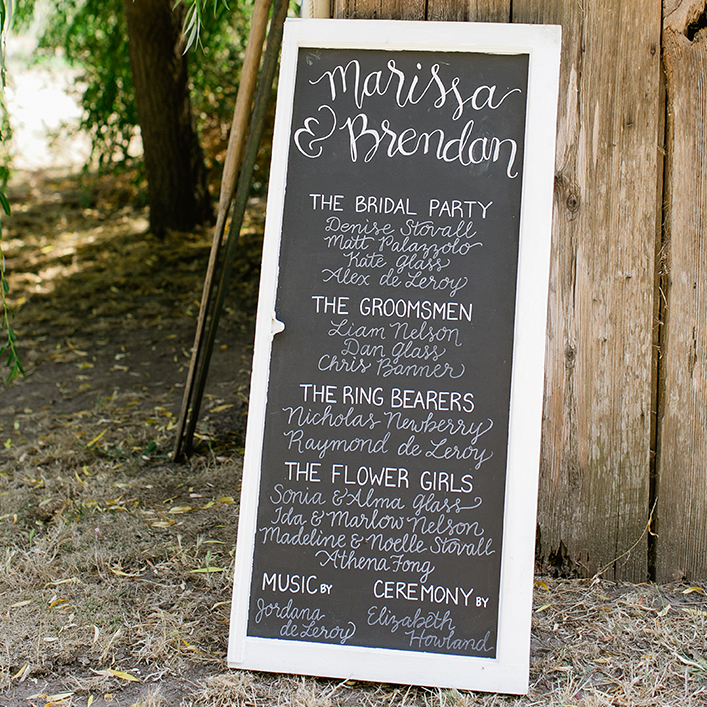 Marissa
& Brendan
THE BRIDAL PARTY
Denise Stovall
Matt Palazzolo
Kate Glass
Alex de Leroy
THE GROOMSMEN
Liam Nelson
Dan Glass
Chris Banner
THE RING BEARERS
Nicholas Newberry
Raymond de Leroy
THE FLOWER GIRLS
Sonia & Alma Glass
Ida & Marlow Nelson
Madeline & Noelle Stovall
Athena Fong
MUSIC BY
Jordana
de Leroy
CEREMONY BY
Elizabeth
Howland